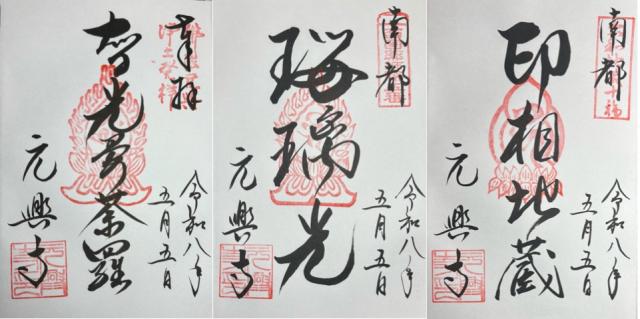 奉拝
智光曼荼羅
元興寺
令和八年
五月五日
南都
瑠璃光
元興寺
令和八年
五月五日
南都
印相地蔵
元興寺
令和八年
五月五日